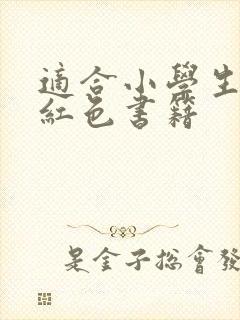 適合小學生
紅色書籍
是金子總會發